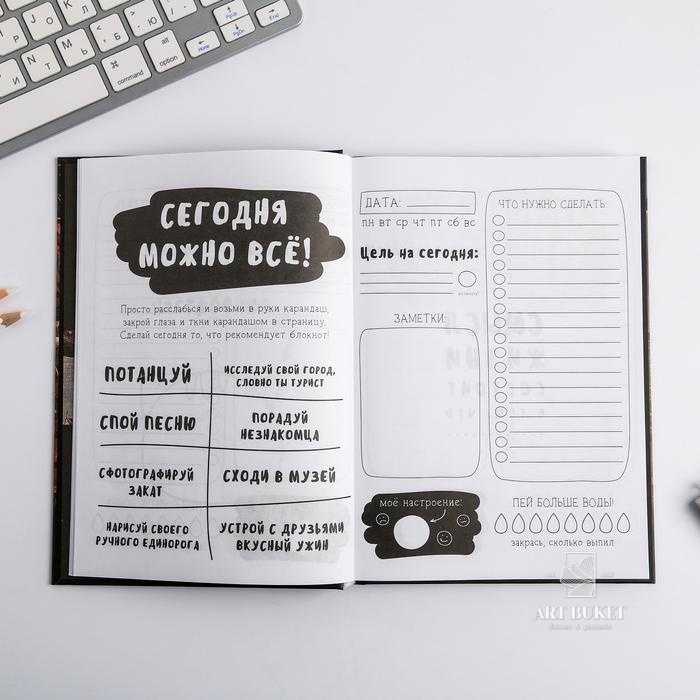 Й
Р
О
Л
К
Д
Ж
Ю
Т
Ь
Б
И
Н
Т
command
⌘
alt
option
Home
PgUp
PgDn
End
СЕГОДНЯ
МОЖНО ВСЁ!
Просто расслабься и возьми в руки карандаш,
закрой глаза и ткни карандашом в страницу.
Сделай сегодня то, что рекомендует блокнот!
ПОТАНЦУЙ
ИССЛЕДУЙ СВОЙ ГОРОД,
СЛОВНО ТЫ ТУРИСТ
СПОЙ ПЕСНЮ
ПОРАДУЙ
НЕЗНАКОМЦА
СФОТОГРАФИРУЙ
ЗАКАТ
СХОДИ В МУЗЕЙ
НАРИСУЙ СВОЕГО
РУЧНОГО ЕДИНОРОГА
УСТРОЙ С ДРУЗЬЯМИ
ВКУСНЫЙ УЖИН
ДАТА:
ПН ВТ СР ЧТ ПТ СБ ВС
Цель на сегодня:
ЗАМЕТКИ:
ЧТО НУЖНО СДЕЛАТЬ:
моё настроение:
ПЕЙ БОЛЬШЕ ВОДЫ!
закрась, сколько выпил
ART BUKET